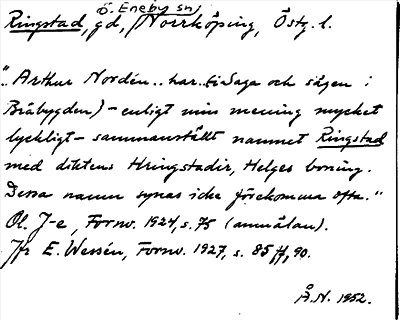 Ö. Eneby sn,
Ringstad, gd, Norrköping, Östg. l.
"Arthur Nordén.. har.. (i Saga och sägen i
Bråbygden) - enligt min mening mycket
lyckligt - sammanställt namnet Ringstad
med diktens Hringstadir, Helges boning.
Dessa namn synas icke förekomma ofta."
Ol. J-e, Fornv. 1924, s. 75 (anmälan).
Jfr E. Wessén, Fornv. 1927, s. 85 ff, 90.
Å.N. 1952.